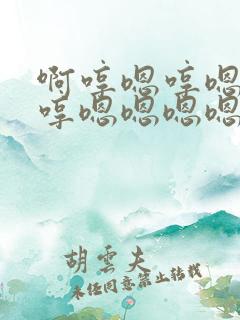 啊哼嗯哼嗯
哼嗯嗯嗯嗯
胡云夫
未经同意禁止转载